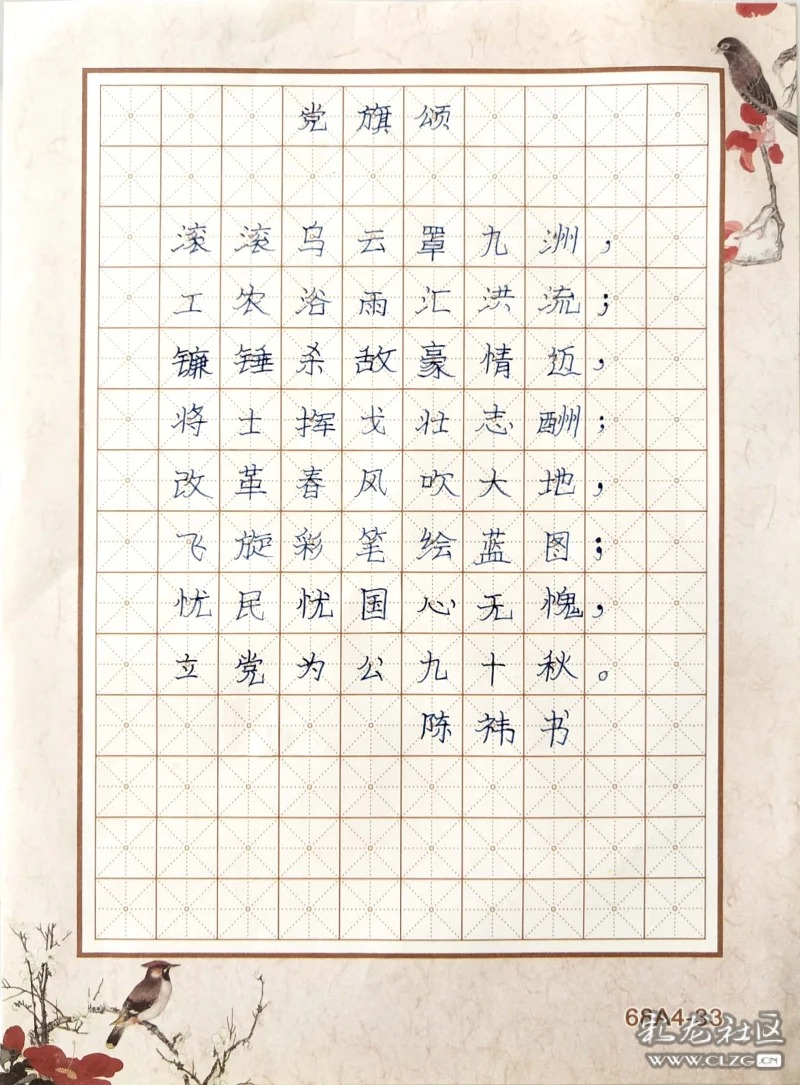 党旗颂
滚滚乌云罩九洲，
工农浴雨汇洪流；
镰锤杀敌豪情迈，
将士挥戈壮志酬；
改革春风吹大地，
飞旋彩笔绘蓝图；
忧民忧国心无愧，
立党为公九十秋。
陈祎书
68A4-33
社区
WWW.CLZG.CN